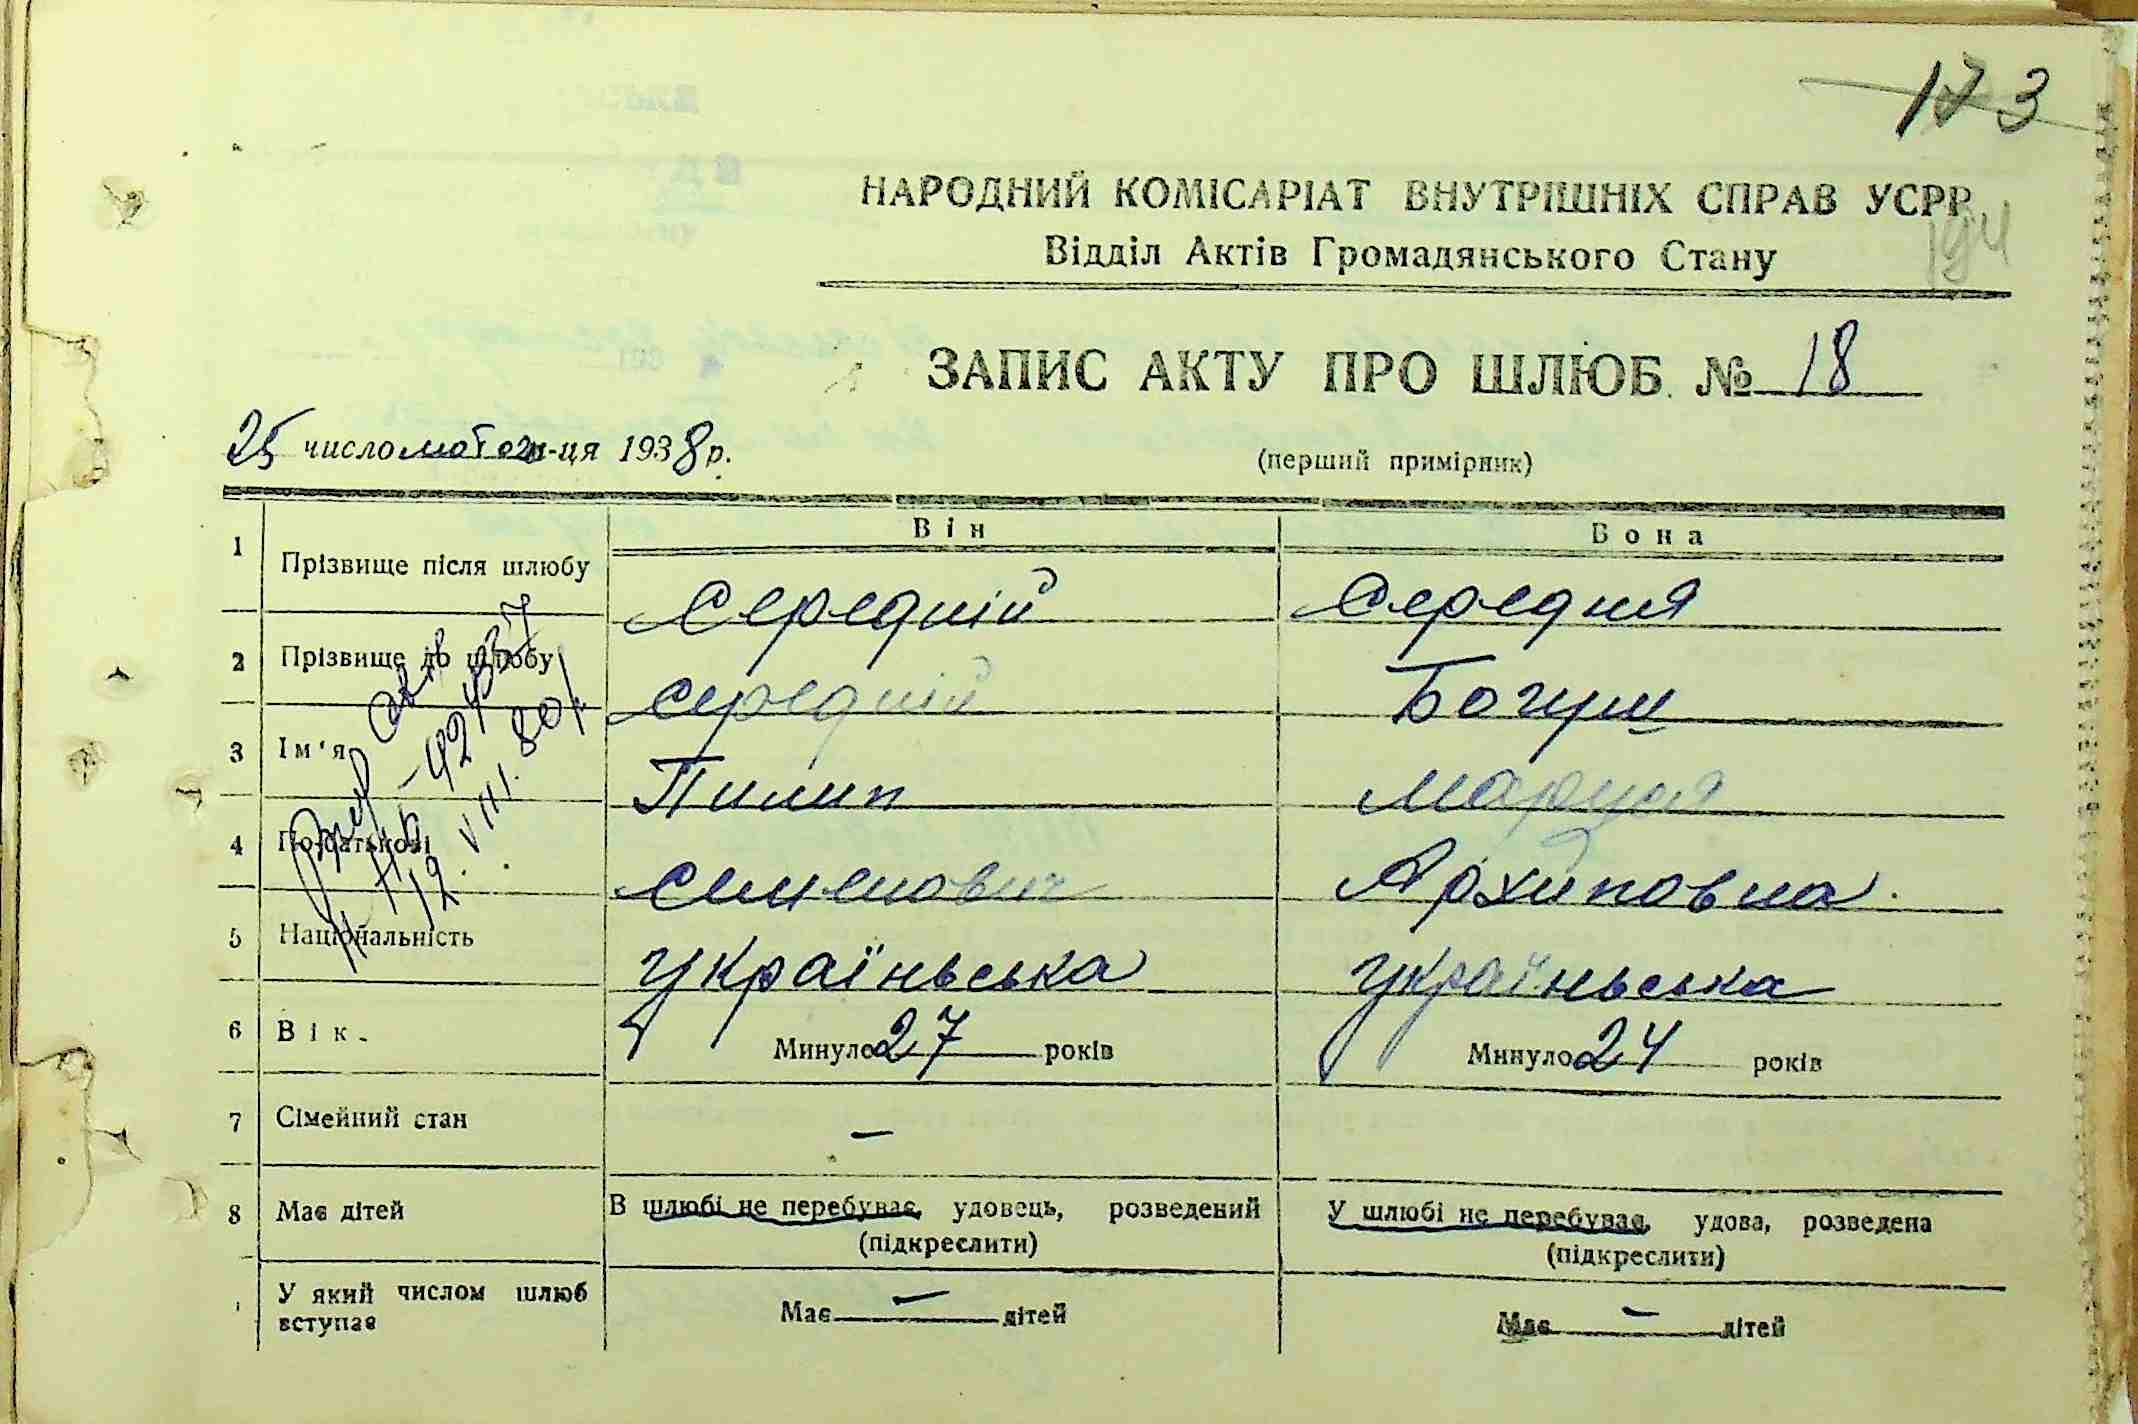 173
НАРОДНИЙ КОМІСАРІАТ ВНУТРІШНІХ СПРАВ УСРР
194
Відділ Актів Громадянського Стану
ЗАПИС АКТУ ПРО ШЛЮБ № 18
25 число лютого м-ця 1938 р.
(перший примірник)
Він Вона
1 Прізвище після шлюбу Середній Середня
2 Прізвище до шлюбу Середній Богуш
3 Ім'я Пилип Маруся
4 По батькові Семенович Архиповна
5 Національність україньська україньська
6 Вік. Минуло 27 років Минуло 24 років
7 Сімейний стан —
8 Має дітей В шлюбі не перебуває, удовець, розведений У шлюбі не перебуває, удова, розведена
(підкреслити) (підкреслити)
У який числом шлюб вступає Має — дітей Має — дітей
424337
12. VIII. 80